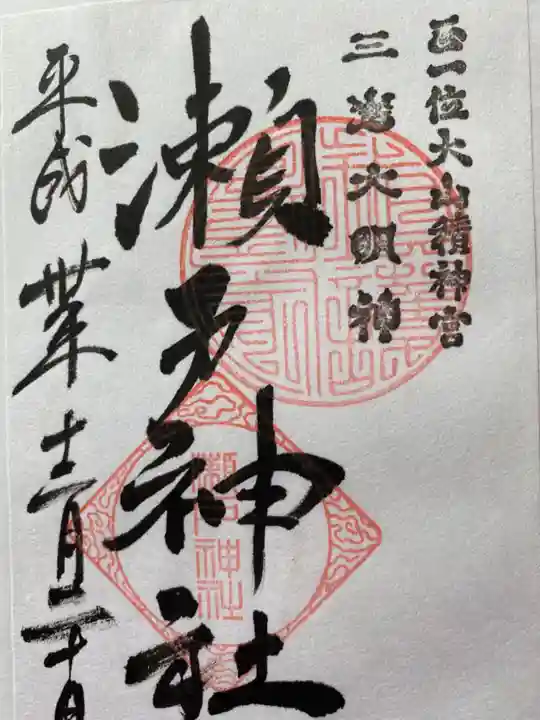 正一位大山積神宮
三嶋大明神
瀬戸神社
平成卅年十二月二十日
瀬戸神社